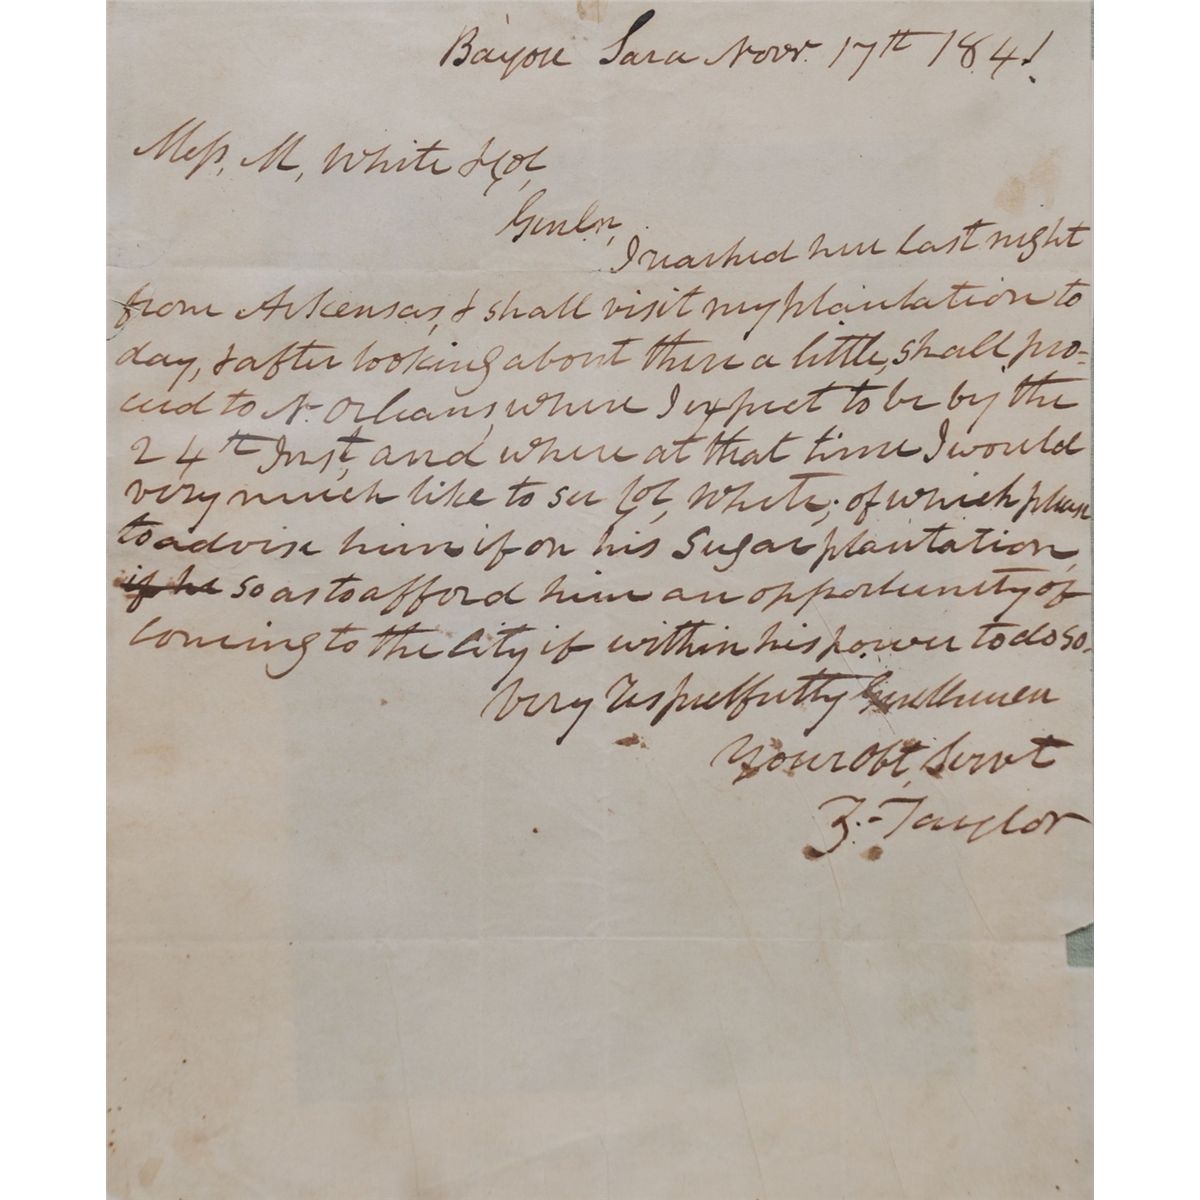 Bayou Sara Novr. 17th 1841
Mess. M, White & Co,
Genln,
I reached here last night
from Arkensas, & shall visit my plantation to
day, & after looking about there a little, shall pro-
ceed to N. Orleans, where I expect to be by the
24th Inst, and where at that time I would
very much like to see Col, White; of which please
to advise him if on his Sugar plantation,
if he so as to afford him an opportunity of
coming to the City if within his power to do so.
Very Respectfully Gentlemen
Your Obt, Servt
Z. Taylor